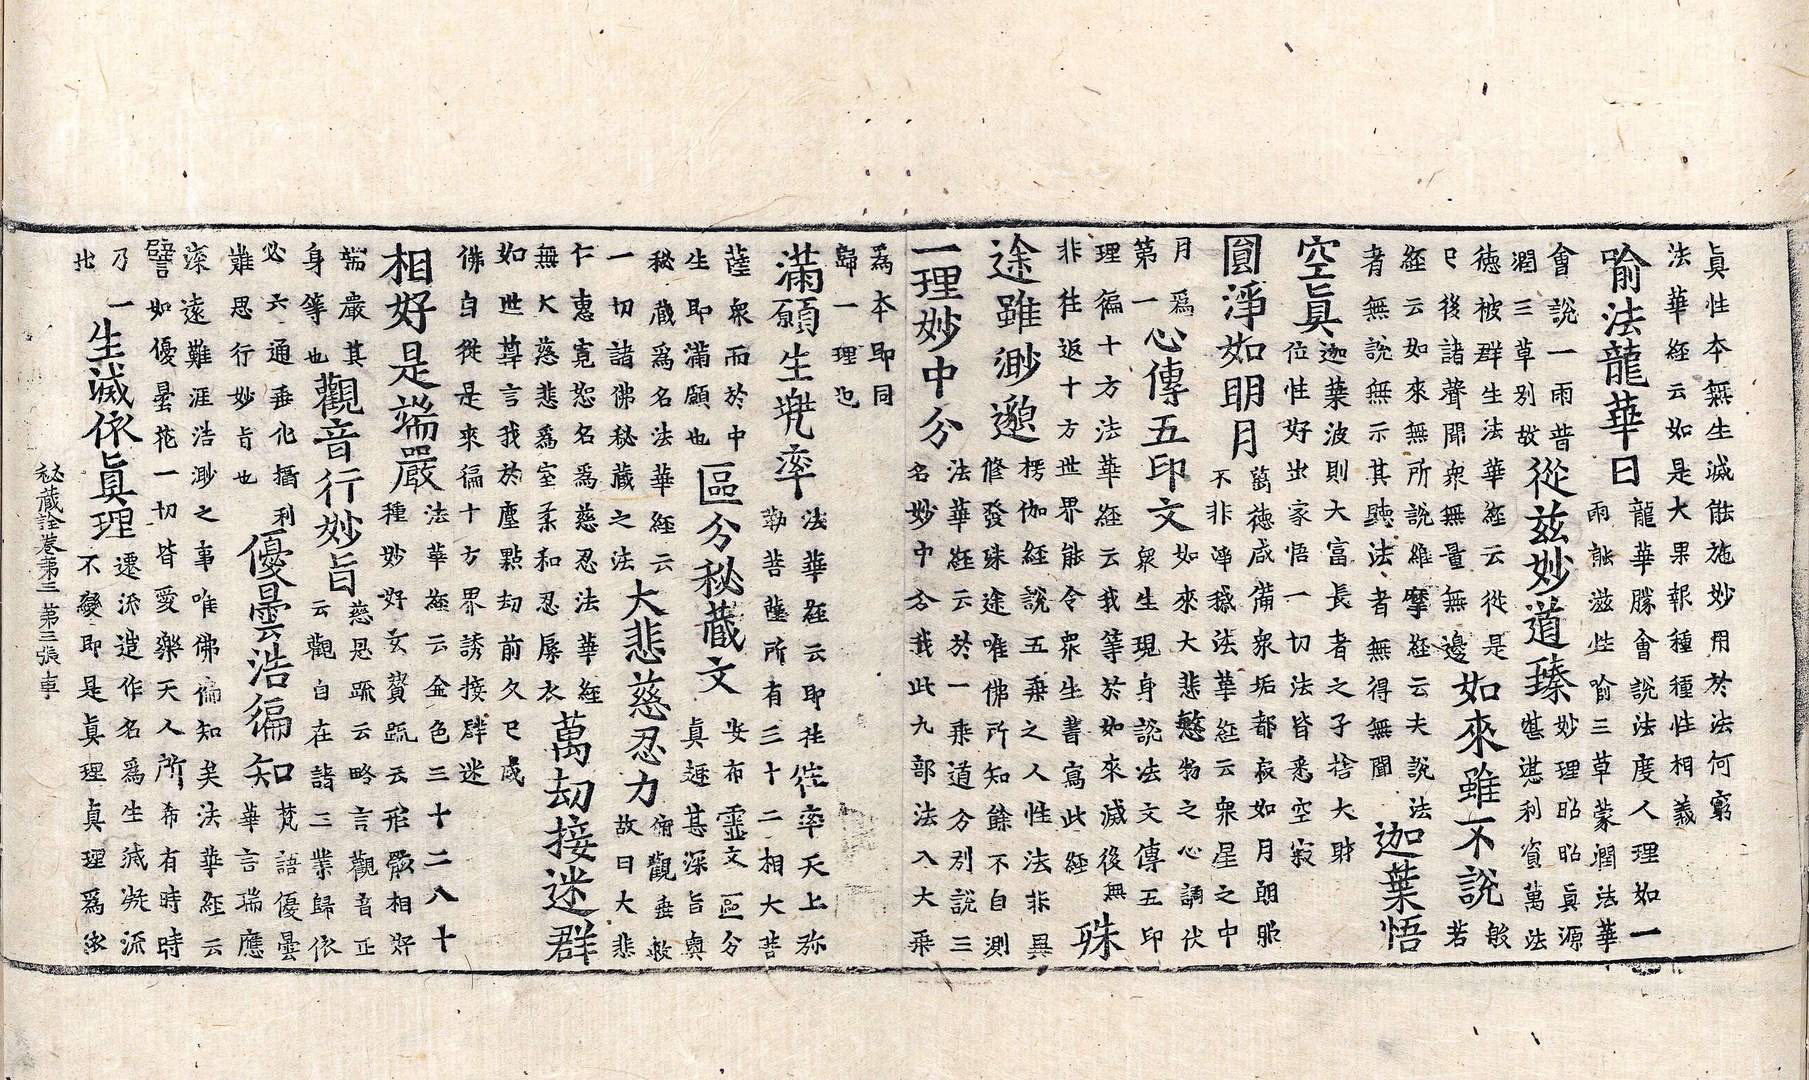 眞性本無生滅能施妙用於法何窮
法華經云如是大果報種種性相義
喻法龍華日
龍華勝會說法度人理如一
雨能滋些喻三草蒙潤法華
會說一雨普
潤三草别故
從茲妙道臻
妙理昭昭眞源
湛湛利資萬法
德被群生法華經云從是
已後諸聲聞衆無量無邊
如來雖不說
般
若
經云如來無所說維摩經云夫說法
者無說無示其聽法者無得無聞
迦葉悟
空眞
迦葉波則大富長者之子捨大財
位性好出家悟一切法皆悉空寂
圓淨如明月
萬德咸備衆垢都寂如月朗照
不非淨慼法華經云衆星之中
月爲
第一
心傳五印文
如來大悲慜物之心調伏
衆生現身說法文傳五印
理徧十方法華經云我等於如來滅後無
非徃返十方世界能令衆生書寫此經
殊
途雖渺邈
楞伽經說五乘之人性法非異
修發殊途唯佛所知餘不自測
一理妙中分
法華經云於一乘道分別說三
名妙中分我此九部法入大乘
爲本即同
歸一理也
滿願生兠率
法華經云即往㤀率天上弥
勒菩薩所有三十二相大菩
薩衆而於中
生即滿願也
區分秘藏文
安布靈文區分
眞趣甚深旨奥
秘藏爲名法華經云
一切諸佛秘藏之法
大悲慈忍力
俯觀垂救
故曰大悲
仁惠寬恕名爲慈忍法華經
無大慈悲爲室柔和忍辱衣
萬劫接迷群
如世尊言我於塵點劫前久已成
佛自從是來徧十方界誘接群迷
相好是端嚴
法華經云金色三十二八十
種妙好玄賛䟽云形骸相好
端嚴其
身等也
觀音行妙旨
慈恩䟽云略言觀音正
云觀自在諸三業歸依
必六通垂化攝利
難思行妙旨也
優曇浩徧知
梵語優曇
華言瑞應
深遠難涯浩渺之事唯佛徧知矣法華經云
譬如優曇花一切皆愛樂天人所希有時時
乃一
出
生滅依眞理
遷流造作名爲生滅凝流
不變即是眞理眞理爲依
秘藏詮卷第三 第三張 車